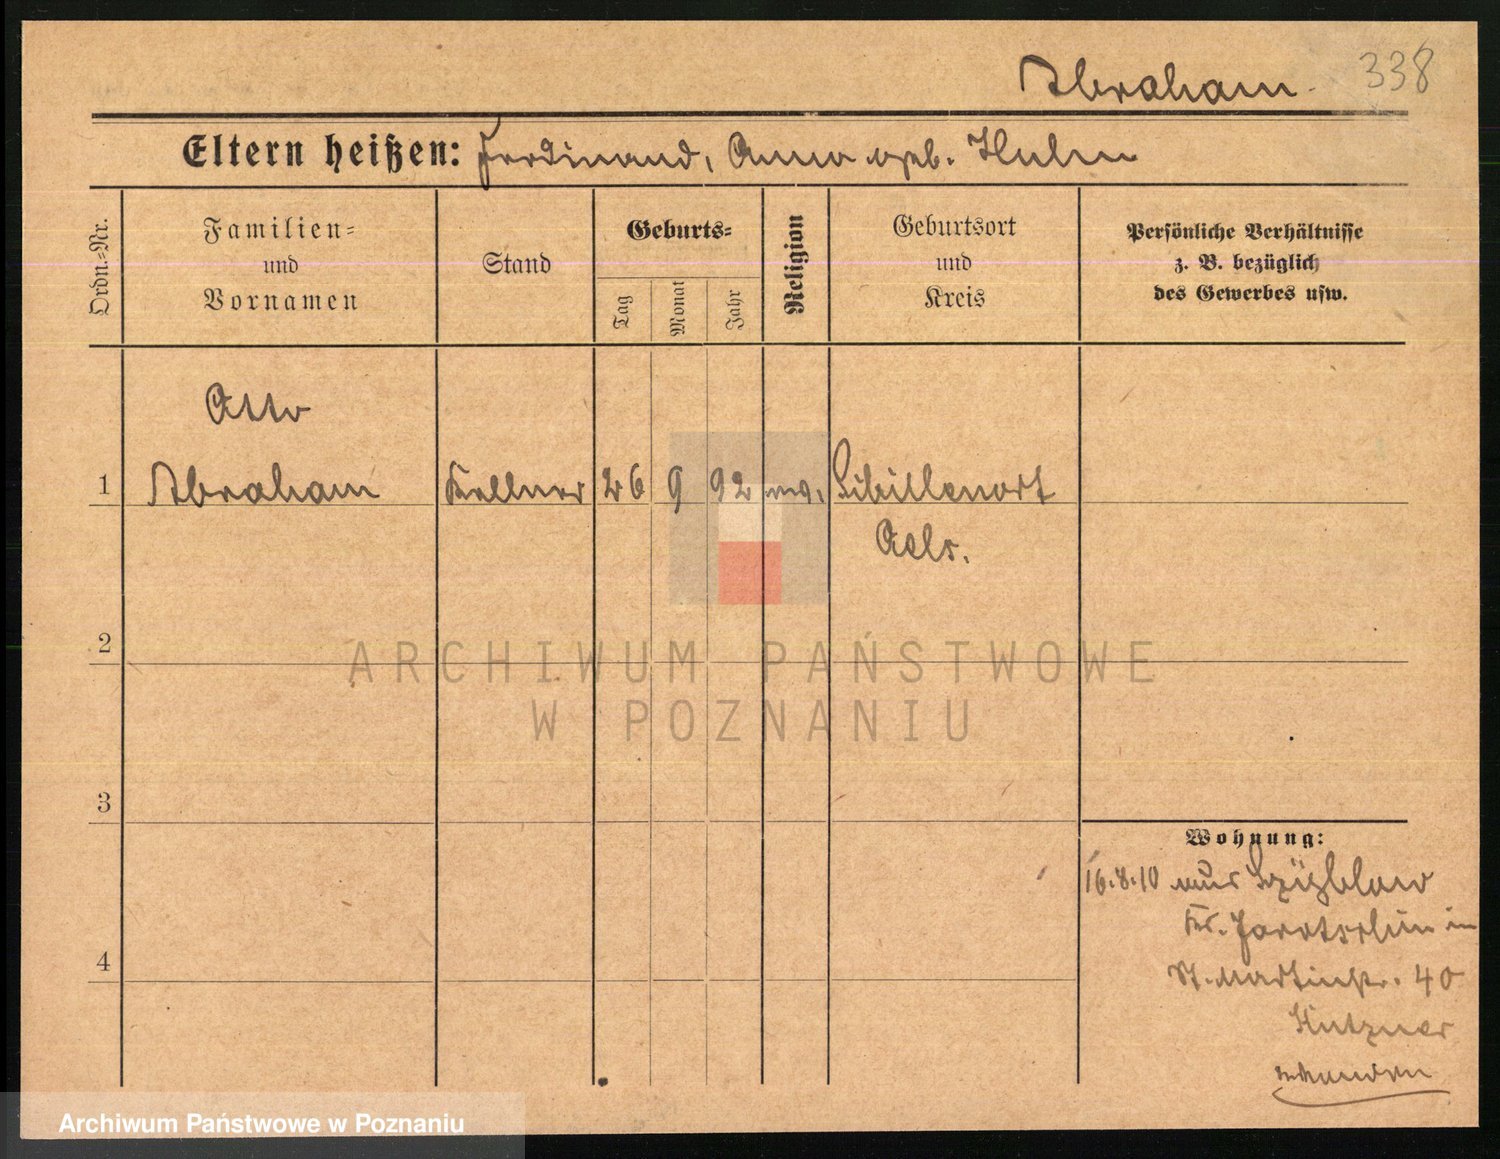 Abraham. 338
Eltern heißen: Ferdinand, Anna geb. Huhn
Ordn.-Nr.
Familien-
und
Vornamen
Stand
Geburts-
Tag
Monat
Jahr
Religion
Geburtsort
und
Kreis
Persönliche Verhältnisse
z. B. bezüglich
des Gewerbes usw.
Otto
1 Abraham Kellner 26 9 92 ev. Sibillenort
Oels.
2
ARCHIWUM PAŃSTWOWE
W POZNANIU
3
Wohnung:
16.8.10 aus
Kr. Jarotschin in
St. Martinstr. 40
4
Archiwum Państwowe w Poznaniu